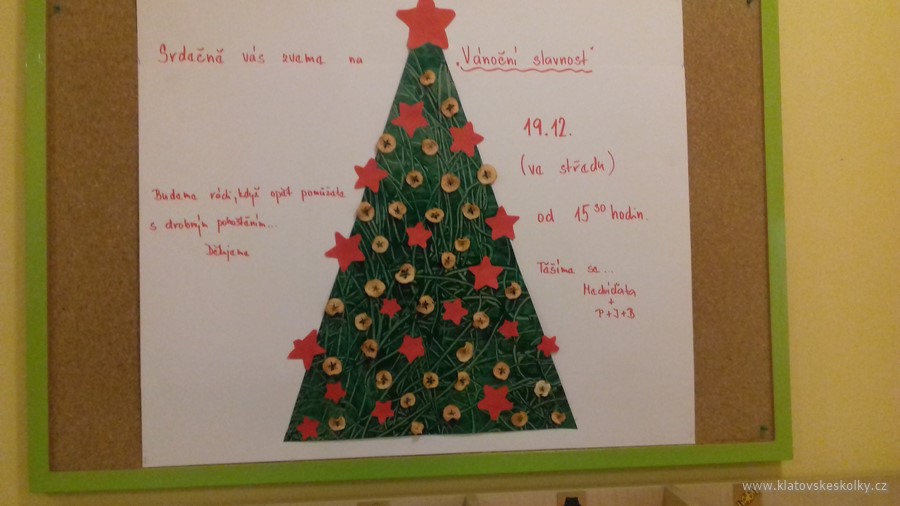 Srdečně vás zveme na „Vánoční slavnost“
19.12.
(ve středu)
od 15 30 hodin.
Budeme rádi, když opět pomůžete
s drobným pohoštěním...
Děkujeme
Těšíme se...
Medvíďata
+
P+J+B
www.klatovskeskolky.cz